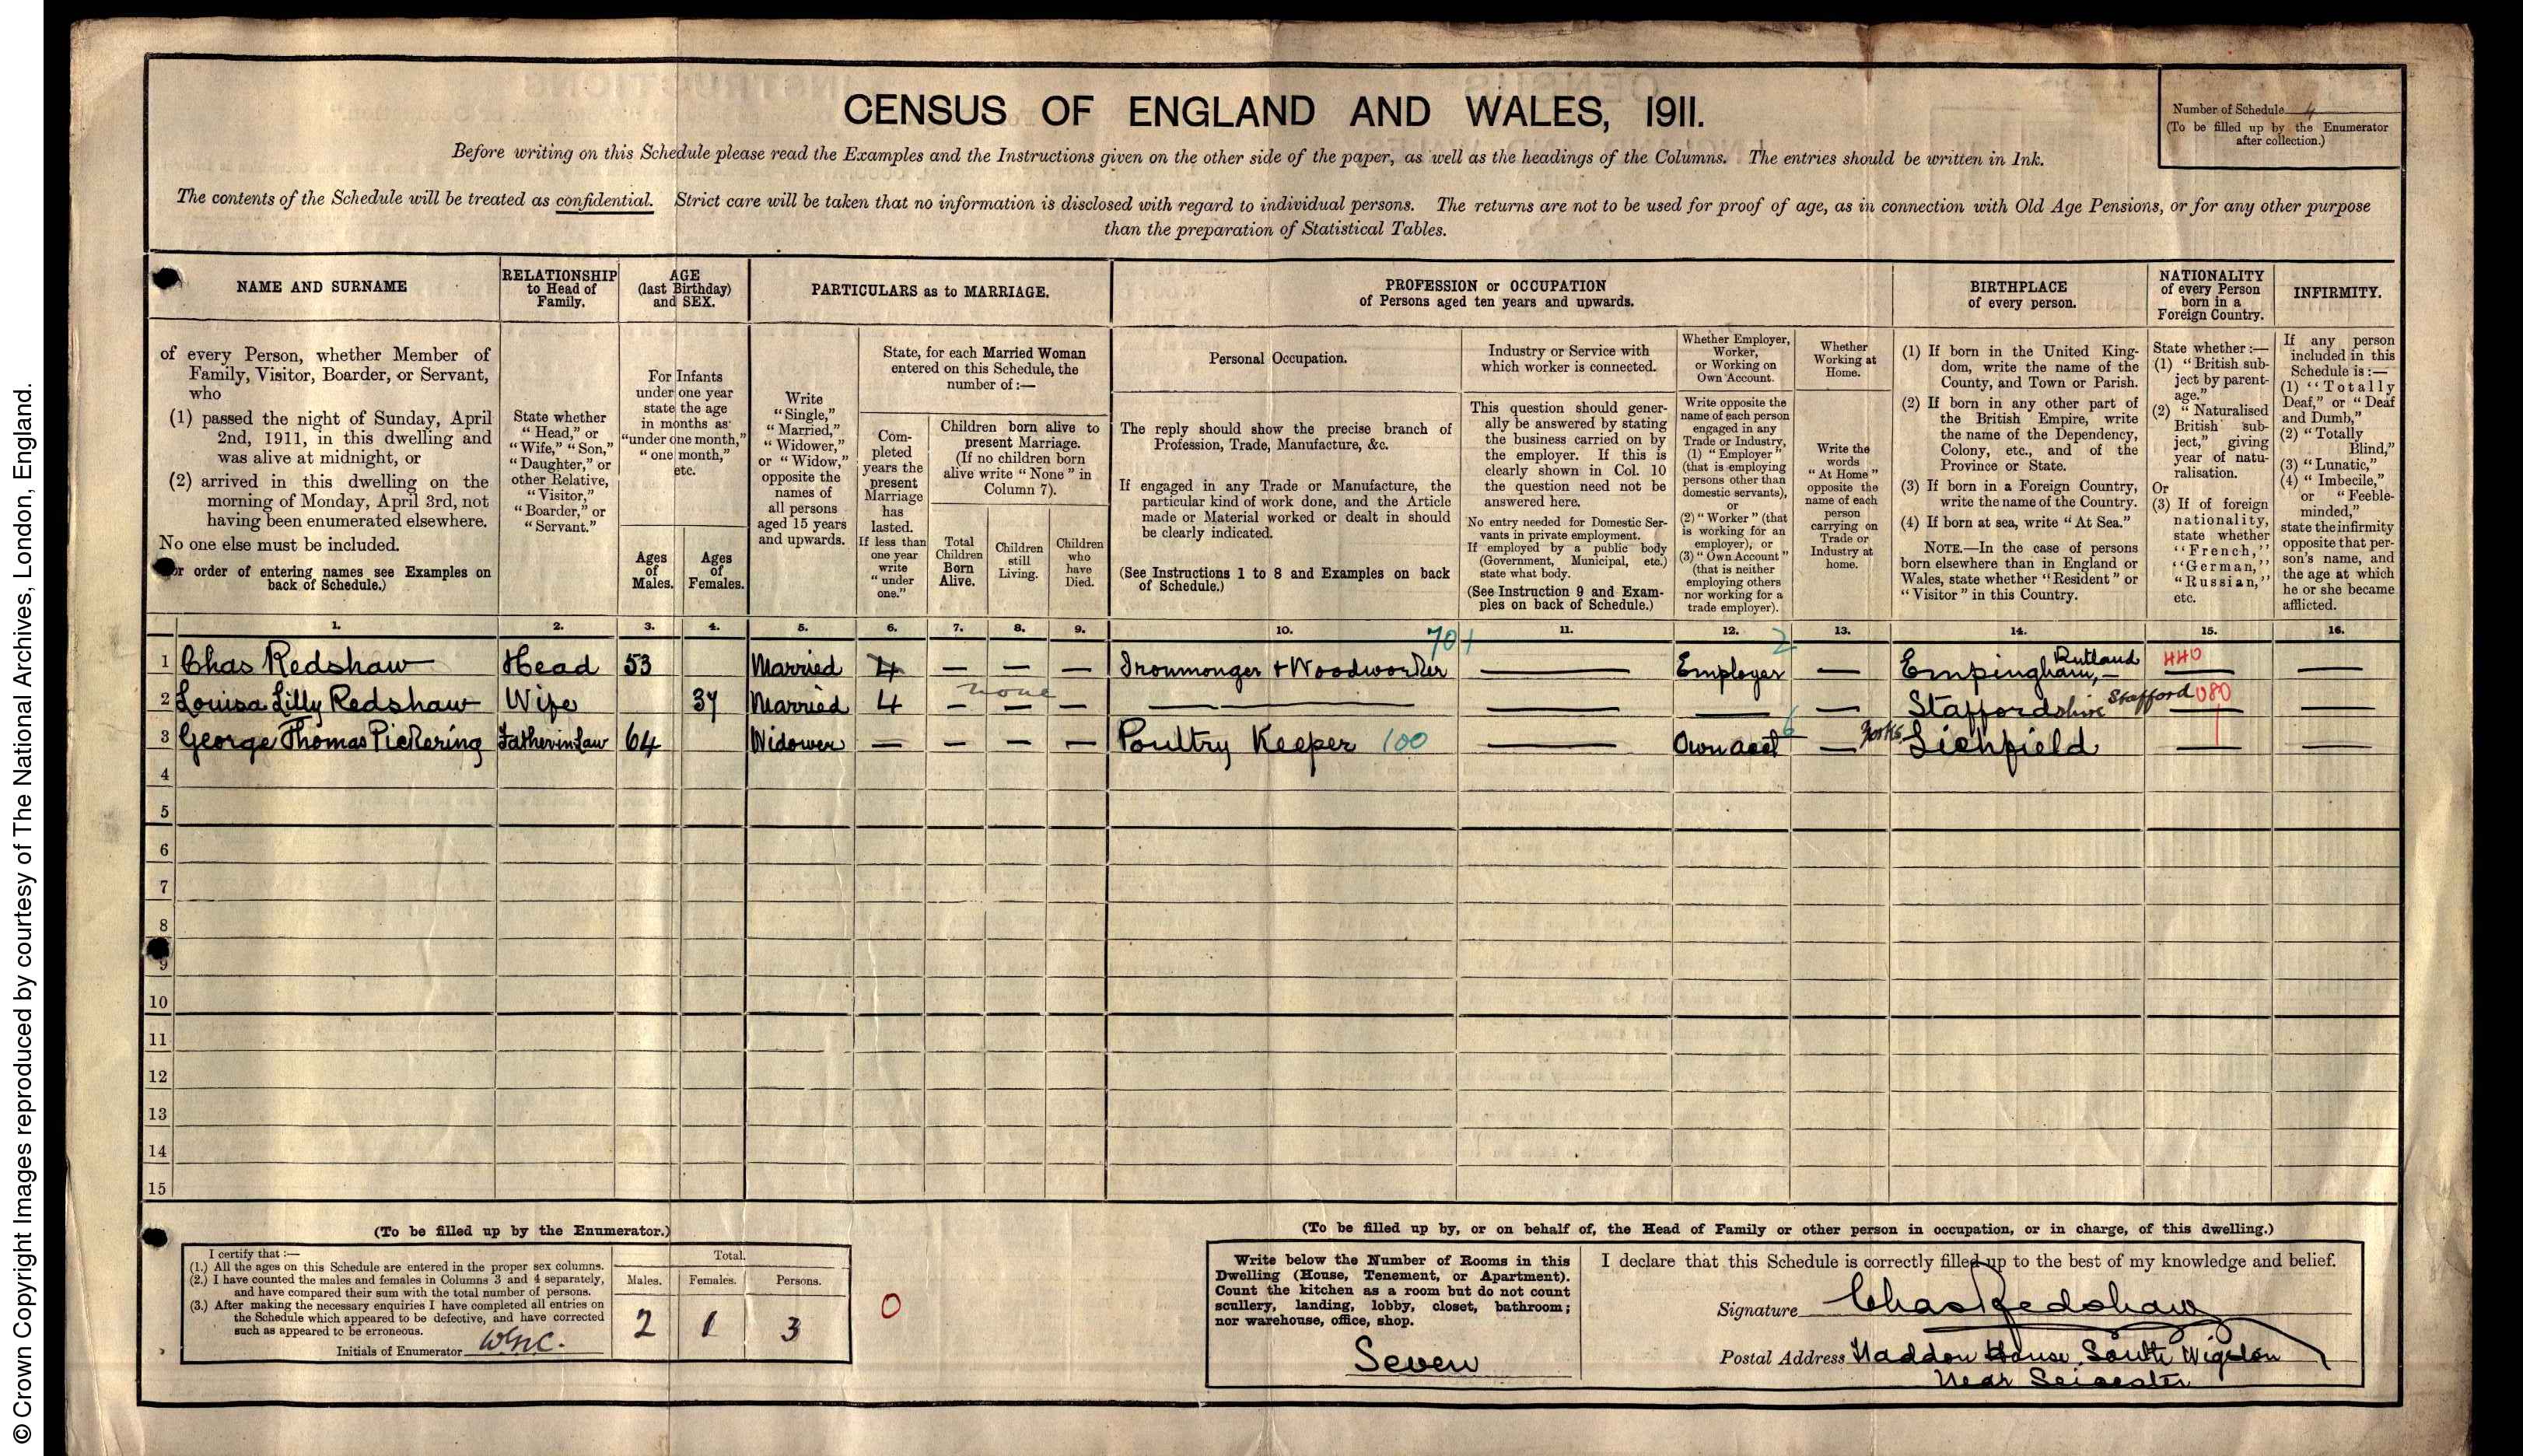 © Crown Copyright Images reproduced by courtesy of The National Archives, London, England.
CENSUS OF ENGLAND AND WALES, 1911.
Number of Schedule 4
(To be filled up by the Enumerator
after collection.)
Before writing on this Schedule please read the Examples and the Instructions given on the other side of the paper, as well as the headings of the Columns. The entries should be written in Ink.
The contents of the Schedule will be treated as confidential. Strict care will be taken that no information is disclosed with regard to individual persons. The returns are not to be used for proof of age, as in connection with Old Age Pensions, or for any other purpose
than the preparation of Statistical Tables.
NAME AND SURNAME
of every Person, whether Member of
Family, Visitor, Boarder, or Servant,
who
(1) passed the night of Sunday, April
2nd, 1911, in this dwelling and
was alive at midnight, or
(2) arrived in this dwelling on the
morning of Monday, April 3rd, not
having been enumerated elsewhere.
No one else must be included.
order of entering names see Examples on
back of Schedule.)
RELATIONSHIP
to Head of
Family.
State whether
"Head," or
"Wife," "Son,"
"Daughter," or
other Relative,
"Visitor,"
"Boarder," or
"Servant."
AGE
(last Birthday)
and SEX.
For Infants
under one year
state the age
in months as
"under one month,"
"one month,"
etc.
Ages
of
Males.
Ages
of
Females.
PARTICULARS as to MARRIAGE.
Write
"Single,"
"Married,"
"Widower,"
or "Widow,"
opposite the
names of
all persons
aged 15 years
and upwards.
State, for each Married Woman
entered on this Schedule, the
number of:—
Com-
pleted
years the
present
Marriage
has
lasted.
If less than
one year
write
"under
one."
Children born alive to
present Marriage.
(If no children born
alive write "None" in
Column 7).
Total
Children
Born
Alive.
Children
still
Living.
Children
who
have
Died.
PROFESSION or OCCUPATION
of Persons aged ten years and upwards.
Personal Occupation.
The reply should show the precise branch of
Profession, Trade, Manufacture, &c.
If engaged in any Trade or Manufacture, the
particular kind of work done, and the Article
made or Material worked or dealt in should
be clearly indicated.
(See Instructions 1 to 8 and Examples on back
of Schedule.)
Industry or Service with
which worker is connected.
This question should gener-
ally be answered by stating
the business carried on by
the employer. If this is
clearly shown in Col. 10
the question need not be
answered here.
No entry needed for Domestic Ser-
vants in private employment.
If employed by a public body
(Government, Municipal, etc.)
state what body.
(See Instruction 9 and Exam-
ples on back of Schedule.)
Whether Employer,
Worker,
or Working on
Own Account.
Write opposite the
name of each person
engaged in any
Trade or Industry,
(1) "Employer"
(that is employing
persons other than
domestic servants),
or
(2) "Worker" (that
is working for an
employer), or
(3) "Own Account"
(that is neither
employing others
nor working for a
trade employer).
Whether
Working at
Home.
Write the
words
"At Home"
opposite the
name of each
person
carrying on
Trade or
Industry at
home.
BIRTHPLACE
of every person.
(1) If born in the United King-
dom, write the name of the
County, and Town or Parish.
(2) If born in any other part of
the British Empire, write
the name of the Dependency,
Colony, etc., and of the
Province or State.
(3) If born in a Foreign Country,
write the name of the Country.
(4) If born at sea, write "At Sea."
NOTE.—In the case of persons
born elsewhere than in England or
Wales, state whether "Resident" or
"Visitor" in this Country.
NATIONALITY
of every Person
born in a
Foreign Country.
State whether:—
(1) "British sub-
ject by parent-
age."
(2) "Naturalised
British sub-
ject," giving
year of natu-
ralisation.
Or
(3) If of foreign
nationality,
state whether
"French,"
"German,"
"Russian,"
etc.
INFIRMITY.
If any person
included in this
Schedule is:—
(1) "Totally
Deaf," or "Deaf
and Dumb,"
(2) "Totally
Blind,"
(3) "Lunatic,"
(4) "Imbecile,"
or "Feeble-
minded,"
state the infirmity
opposite that per-
son's name, and
the age at which
he or she became
afflicted.
1. 2. 3. 4. 5. 6. 7. 8. 9. 10. 11. 12. 13. 14. 15. 16.
1 Chas Redshaw Head 53 Married 4 — — — Ironmonger + Woodworker 701 — Employer 2 — Empingham, Rutland 440 — —
2 Louisa Lilly Redshaw Wife 37 Married 4 none — — — — — — — Staffordshire Stafford 080 — —
3 George Thomas Pickering Father in Law 64 Widower — — — — Poultry Keeper 100 — Own acct 6 — Yorks Lichfield — —
4
5
6
7
8
9
10
11
12
13
14
15
(To be filled up by the Enumerator.)
I certify that:—
(1.) All the ages on this Schedule are entered in the proper sex columns.
(2.) I have counted the males and females in Columns 3 and 4 separately,
and have compared their sum with the total number of persons.
(3.) After making the necessary enquiries I have completed all entries on
the Schedule which appeared to be defective, and have corrected
such as appeared to be erroneous.
Initials of Enumerator
Total.
Males. Females. Persons.
2 1 3
0
(To be filled up by, or on behalf of, the Head of Family or other person in occupation, or in charge, of this dwelling.)
Write below the Number of Rooms in this
Dwelling (House, Tenement, or Apartment).
Count the kitchen as a room but do not count
scullery, landing, lobby, closet, bathroom;
nor warehouse, office, shop.
Seven
I declare that this Schedule is correctly filled up to the best of my knowledge and belief.
Signature Chas Redshaw
Postal Address Haddon House, South Wigston
Near Leicester